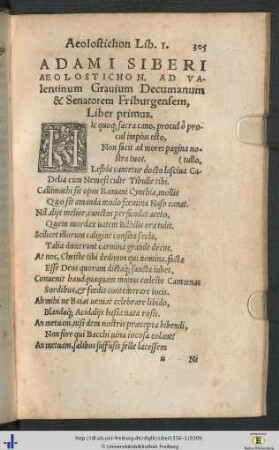 Aeolostichon Lib. 1. 305
ADAMI SIBERI
AEOLOSTICHON, AD VA-
lentinum Grauium Decumanum
& Senatorem Friburgensem,
Liber primus.
Ic quoq; sacra cano, procul ô pro
cul impius esto,
Non facit ad mores pagina no
stra tuos. (tullo,
Lesbia cantetur docto lasciua Ca-
Delia cum Nemesi culte Tibulle tibi.
Callimachi sit opus Romani Cynthia, mollis
Quo sit amanda modo foemina Naso canat.
Nil dijs melior, cunctos perfundat aceto,
Quem mordax uatem Bilbilis ora tulit.
Scilicet illorum caligine consita secla,
Talia dixerunt carmina grande decus.
At nos, Christe tibi dedimus qui nomina, facta
Esse Deus quorum dictaq; sancta iubet,
Conuenit haudquaquam munus coeleste Camoenas
Sordibus, & foedis contemerare iocis.
Ah mihi ne Baias ueniat celebrare libido,
Blandaq; Acidalijs basia nata rosis.
An metuam, nisi dem nostris praecepta bibendi,
Non fore qui Bacchi uina iocosa colant?
An metuam, salibus suffusis felle lacessem
u Ni